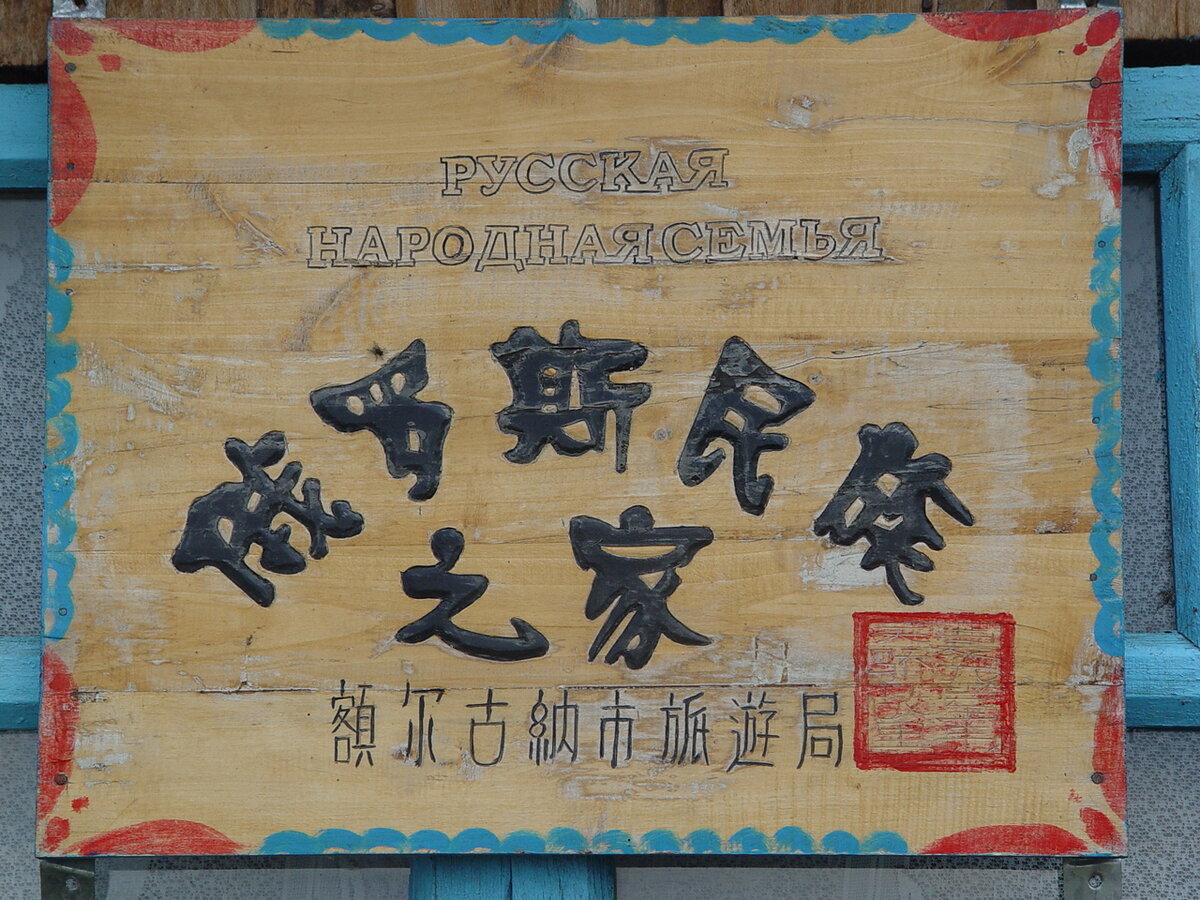 РУССКАЯ
НАРОДНАЯ СЕМЬЯ
俄罗斯民族
之家
額尔古納市旅遊局